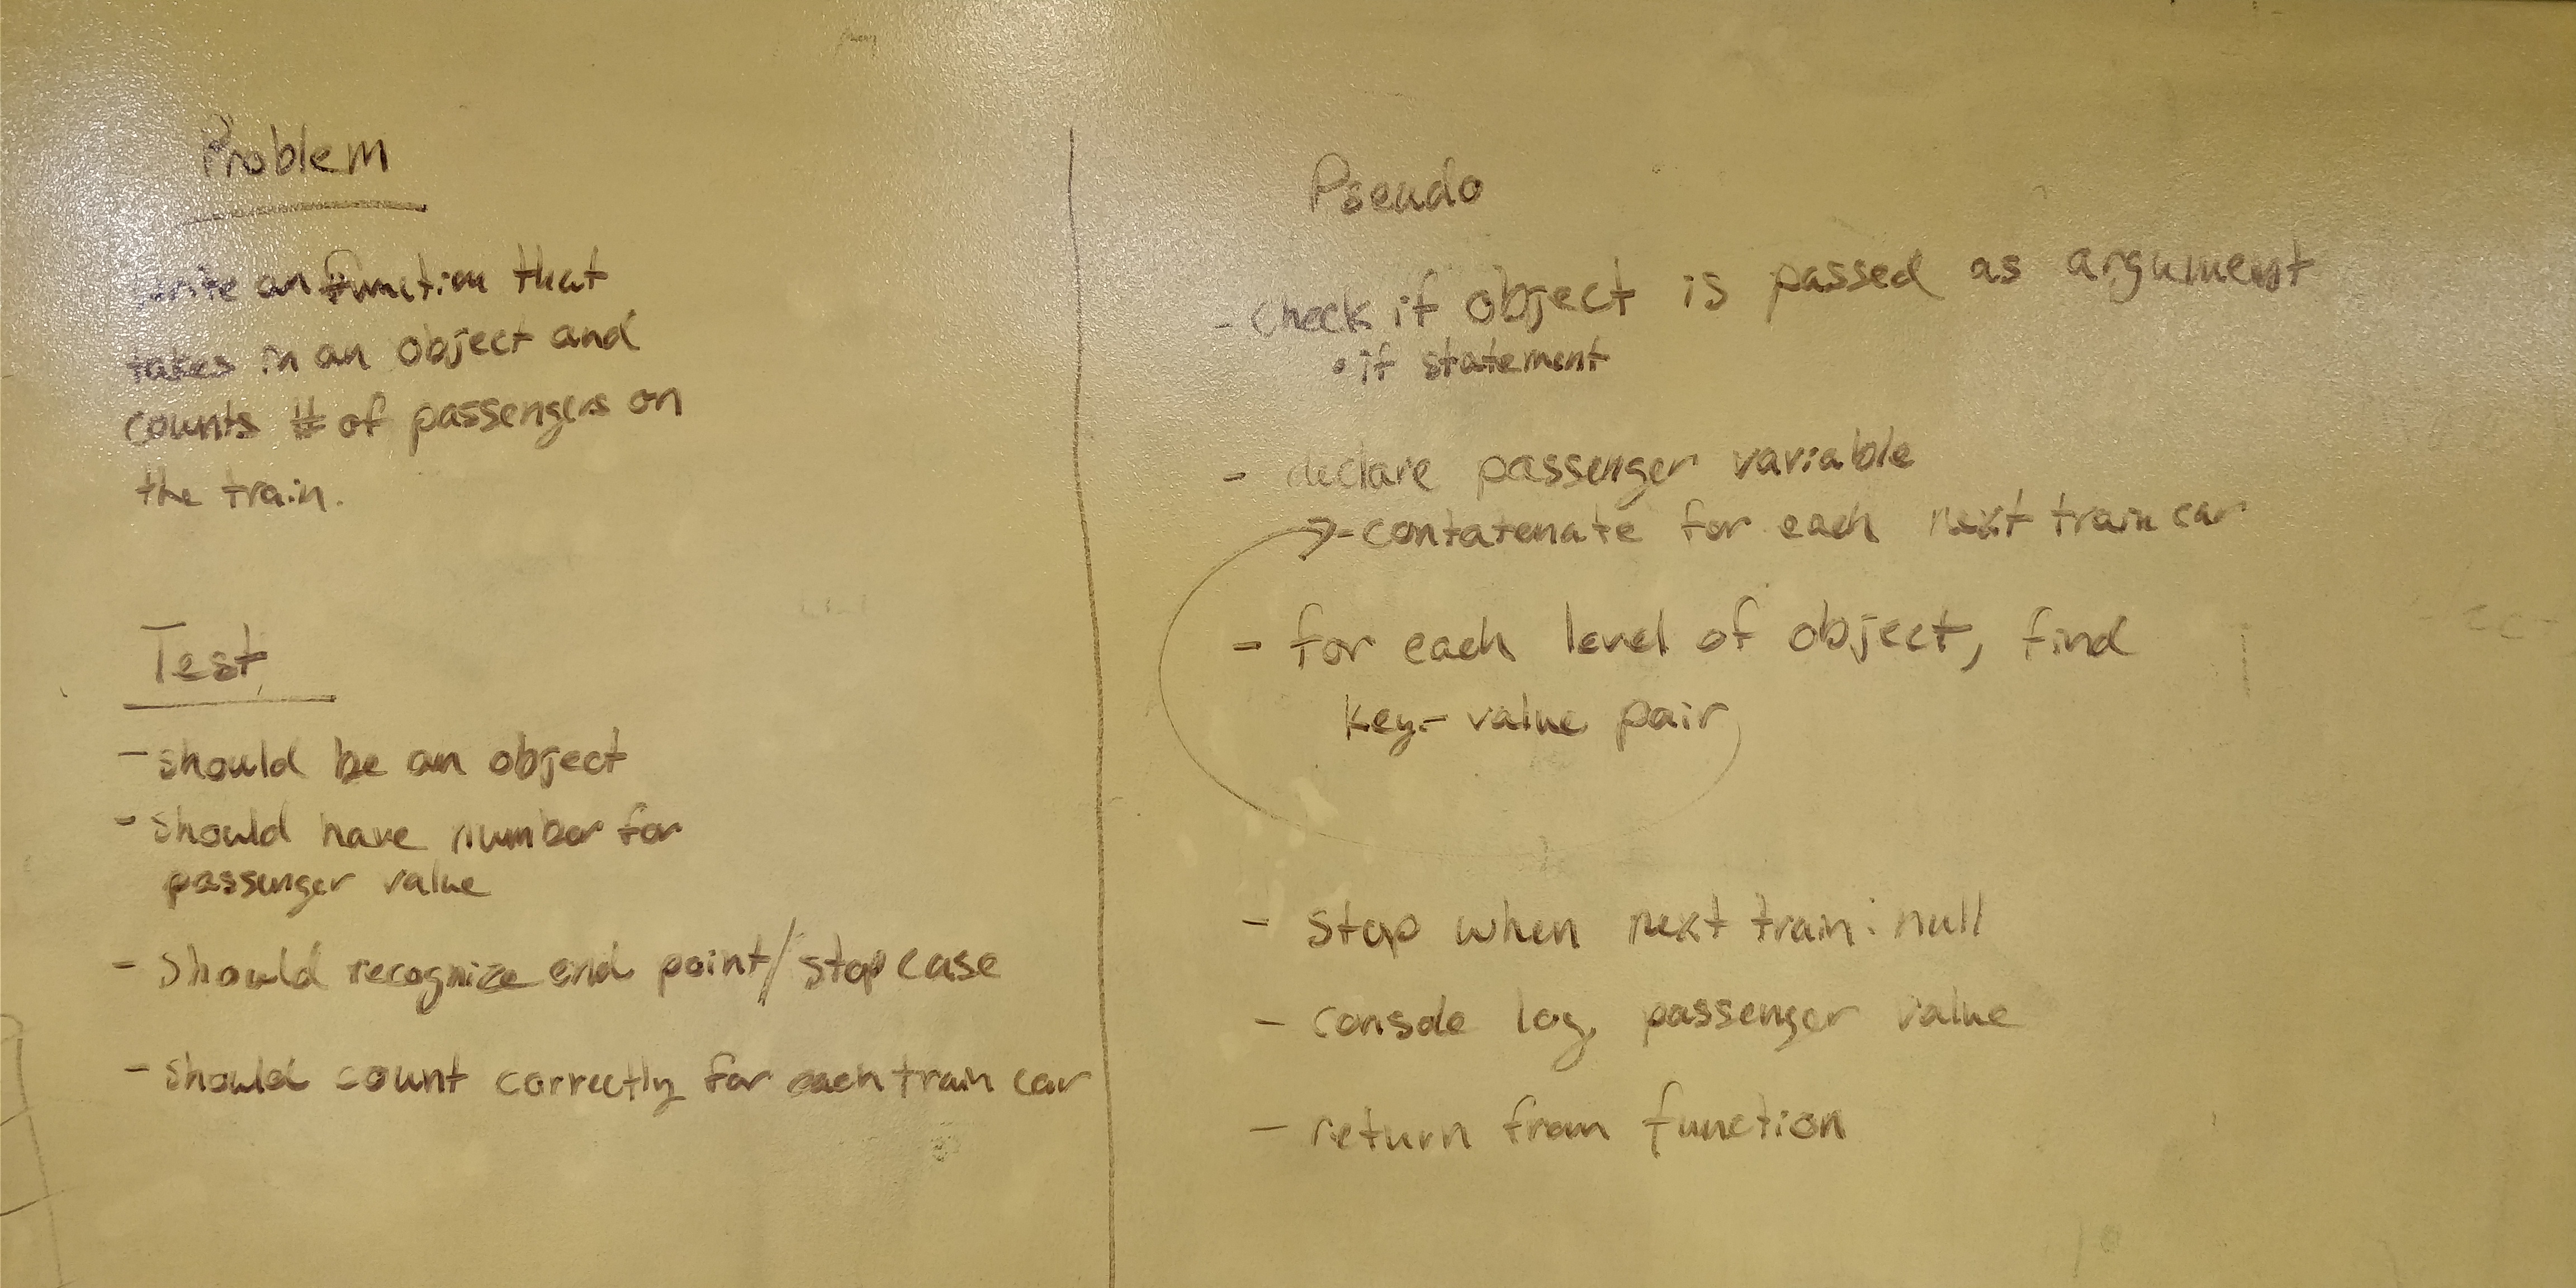 Problem
write an function that
takes in an object and
counts # of passengers on
the train.
Test
- should be an object
- should have number for
passenger value
- should recognize end point/stop case
- should count correctly for each train car
Pseudo
- check if object is passed as argument
• if statement
- declare passenger variable
- contatenate for each next train car
- for each level of object, find
key-value pair
- stop when next train: null
- console log passenger value
- return from function